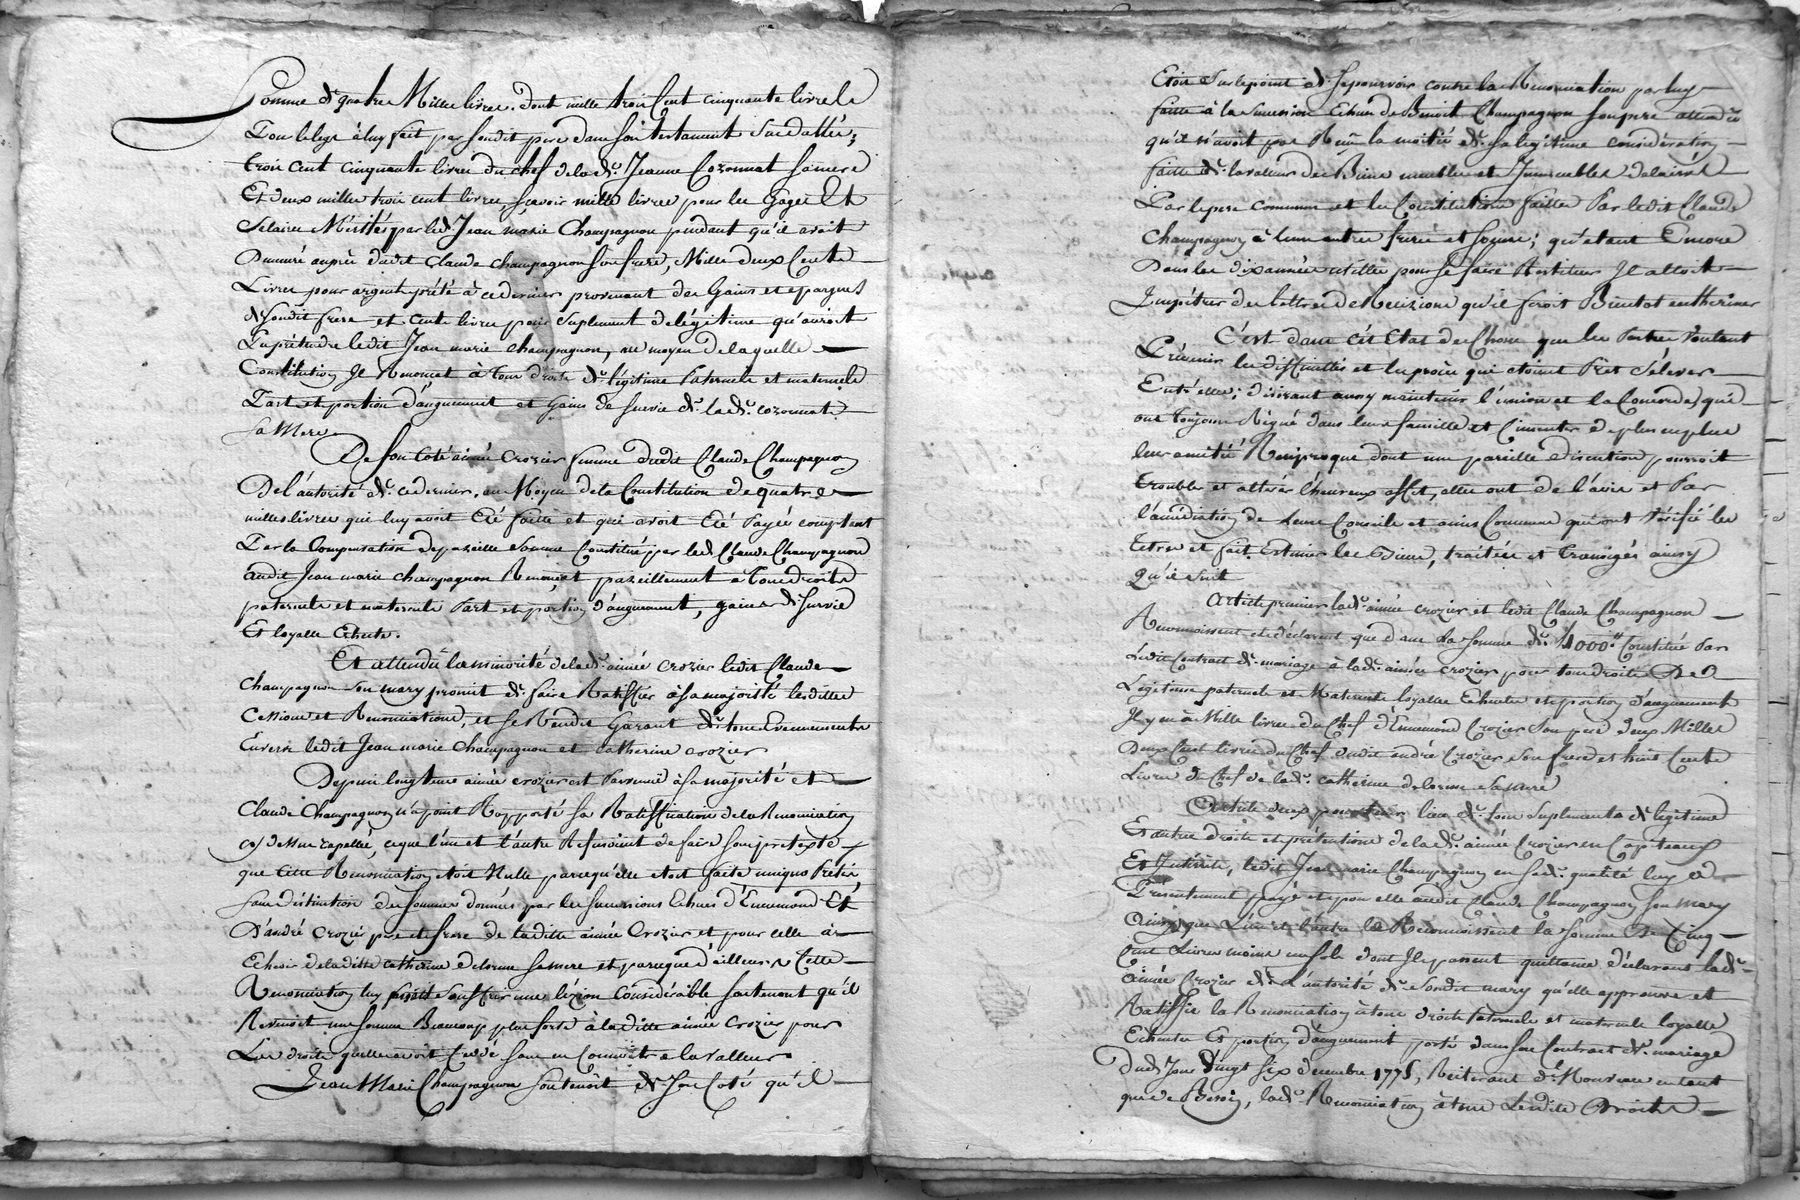 Somme de quatre Mille livres. dont mille trois Cent cinquante livres
Pour le legs à luy fait par sondit pere dans son testament susdatté;
trois cent cinquante livres du chef de lad.e Jeanne Cozonnat sa mere
Et deux mille trois cent livres, sçavoir mille livres pour les Gages Et
Selaires Mérités par led. Jean marie Champagnon pendant qu'il avoit
Demeuré auprès dudit Claude Champagnon son frere, Mille deux Cents
Livres pour argent prété à ce dernier provenant des Gains et epargnes
de sondit frere et Cent livres pour suplement de légitime qu'auroit
Pu prétendre ledit Jean marie Champagnon, au moyen de laquelle
Constitution Il Renoncat à tous droits de légitime Paternels et maternels
Part et portion d'augment et Gains de survie de lad.e cozonnat
Sa Mere.
De son Coté aimée Crozier femme dudit Claude Champagnon
De l'autorité de ce dernier, au Moyen de la Constitution de quatre
milles livres qui luy avoit Eté faitte et qui avoit Eté Payée comptant
Par la Compensation de pareille somme Constituée par led. Claude Champagnon
audit Jean marie Champagnon Renonçat pareillement à Tous droits
paternels et maternels Part et portion d'augment, gains de survie
Et loyalle Echute.
Et attendu la minorité de lad.e aimée Crozier ledit Claude
Champagnon son mary promit de faire Ratiffier à sa majorité lesdittes
Cessions et Renonciations, et se Rendit Garant de tous Evenements
Envers ledit Jean marie Champagnon et Catherine Crozier
Depuis longtems aimée crozier est Parvenue à sa majorité et
Claude Champagnon n'a point Rapporté sa Ratiffication de la Renonciation
cy dessus rapellée, ce que l'un et l'autre Refusoient de faire sous pretexte
que cette Renonciation étoit Nulle parcequ'elle etoit faite unique Prétie
sans distinction des sommes données par les successions Echues d'Ennemond Et
D'andré Crozier pere et frere de laditte aimée Crozier et pour celle à
Echeoir de laditte Catherine delorme sa mere et parceque d'ailleurs Cette
Renonciation luy faisoit souffrir une lézion Considérable sortement qu'il
Revenoit une somme Beaucoup plus forte à laditte aimée Crozier pour
Les droits qu'elle avoit Cedés sans en Connoitre la valleur
Jean Marie Champagnon soutenoit de son Coté qu'il
Etoit sur le point de se pourvoir contre la Renonciation par luy
faitte à la succession Echue de Benoit Champagnon son pere attendu
qu'il n'avoit pas Reçu la moitié de sa légitime considération
faitte de la valeur des Biens meubles et Immeubles delaissés
Par le pere commun et les Constitutions faittes Par ledit Claude
Champagnon à leurs autres freres et soeurs; qu'étant Encore
Dans les dix années utilles pour se faire Restituer Il alloit
Impétrer des lettres de Rescizion qu'il feroit Bientot entheriner
C'est dans cet Etat des Choses que les Parties Voulant
Prévenir les difficultés et les procès qui etoient Prêts s'élever
Entr'elles; désirant aussy maintenir l'union et la Concorde qui
ont toujours Régné dans leurs familles et Cimenter de plus en plus
leur amitié Reciproque dont une pareille discution pourroit
troubler et altérer l'heureux effet, elles ont de l'avis et Par
la médiation de leurs Conseils et amis Communs qui ont vérifié les
titres et fait Estimer les Biens, traitées et transigés ainsy
Qu'il suit
Article premier lad.e aimée crozier et ledit Claude Champagnon
Reconnoissent et déclarent que dans la somme de 4000.tt Constitué par
ledit Contract de mariage à lad.e aimée Crozier pour tous droits De
Légitime paternels et Maternels loyalles Echutes et portion d'augment
Il y en a Mille livres du Chef d'Ennemond Crozier son pere deux Milles
Deux Cent livres du Chef dudit andré Crozier son frere et huit Cents
Livres du Chef de lad.e catherine delorme sa mere
Article deux pour tenir lieu de tous suplements de légitime
Et autres droits et prétentions de lad.e aimée Crozier en Capiteaux
Et Intérêts, ledit Jean Marie Champagnon en sad.e qualité luy a
Présentement payé et pour elle audit Claude Champagnon son Mary
Ainsy que L'un et l'autre le Reconnoissent la somme de Cinq
Cent Livres moins un sols dont Ils passent quittance déclarant lad.e
Aimée Crozier de L'autorité de sondit mary qu'elle approuve et
Ratiffie la Renonciation à tous droits Paternels et maternels loyalle
Echutes Et portion d'augment porté dans son Contract de mariage
Dud. Jour vingt six decembre 1775, Réiterant de Nouveau en tant
que de Besoin, lad.e Renonciation à tous Lesdits Droits